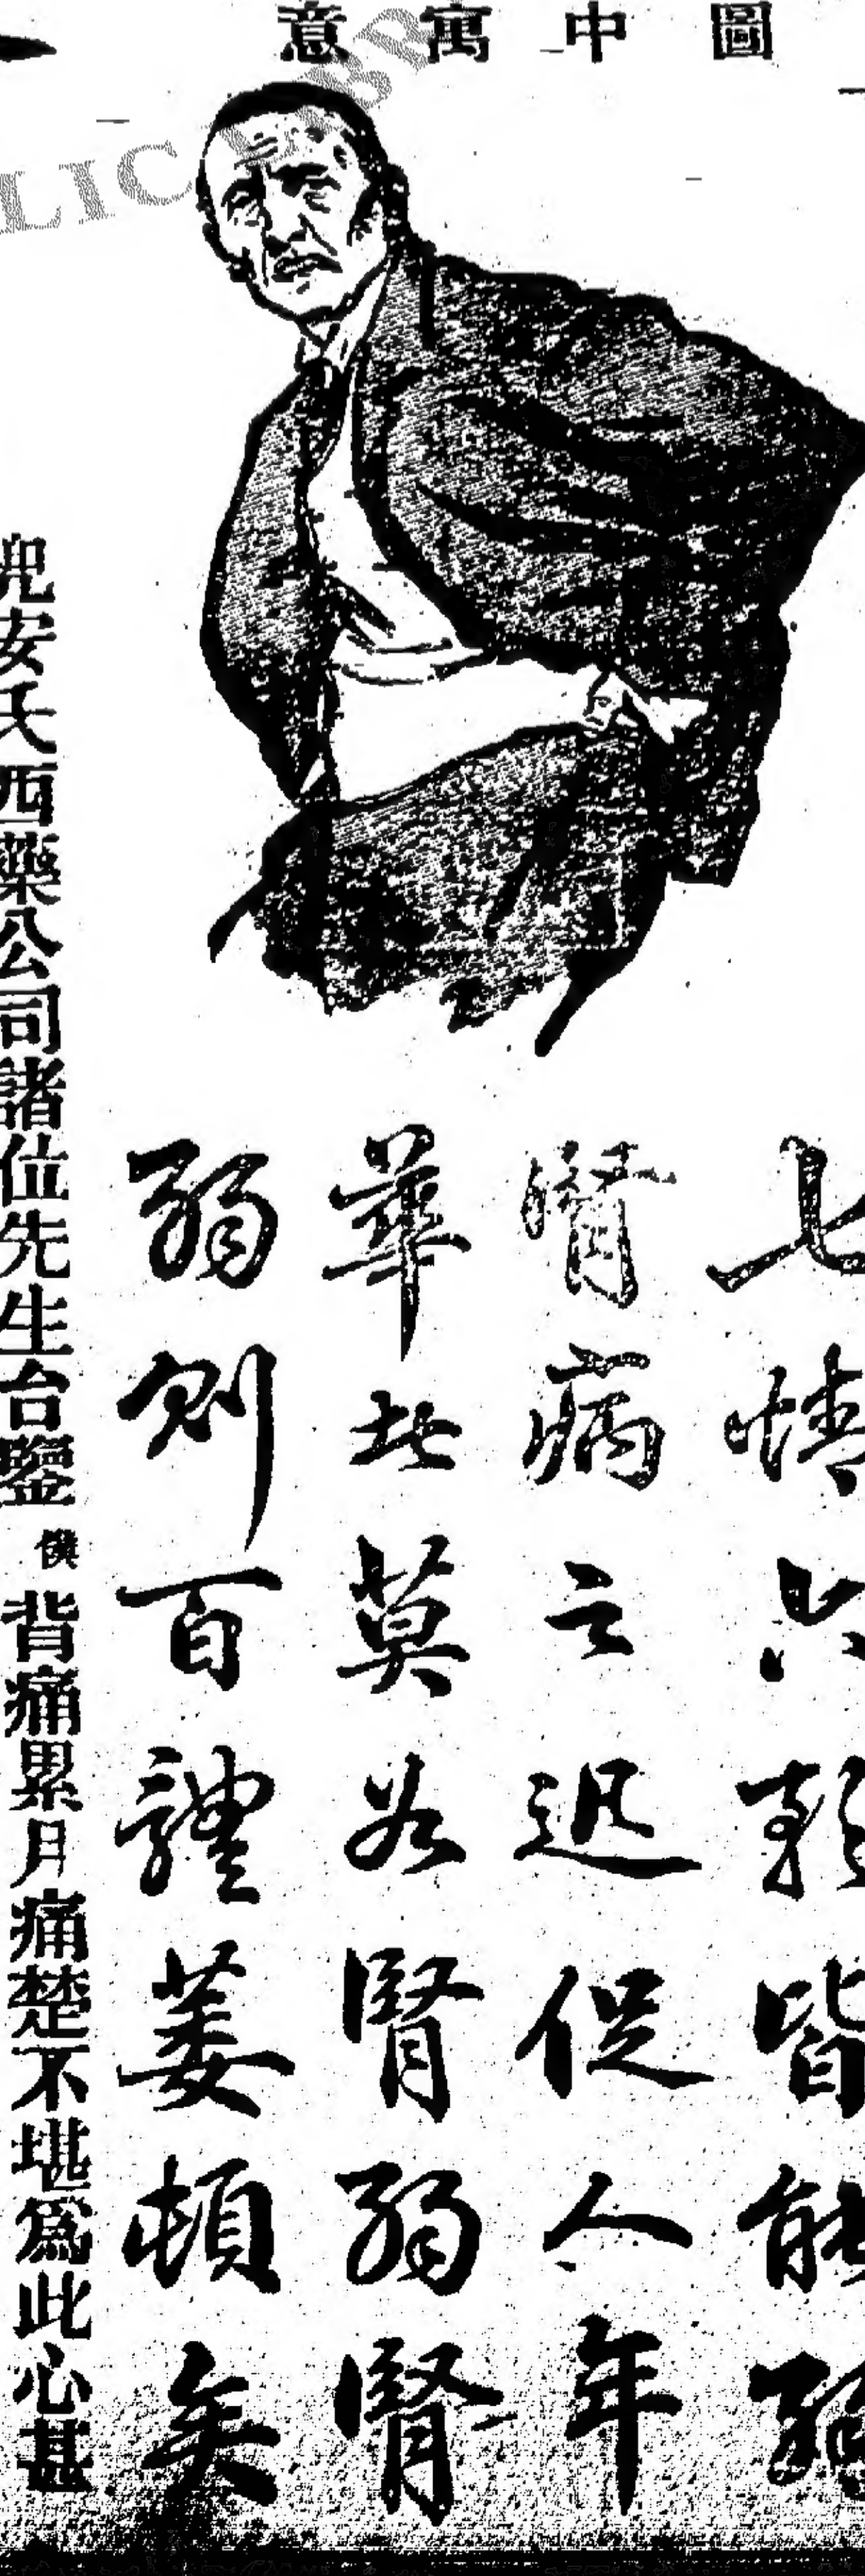 圖中寓意
七情六郁皆能弱
腎病之迅促人年
華此莫如腎弱腎
弱則百體萎頓矣
兜安氏西藥公司諸位先生台鑒 僕背痛累月痛楚不堪爲此心甚
LIC